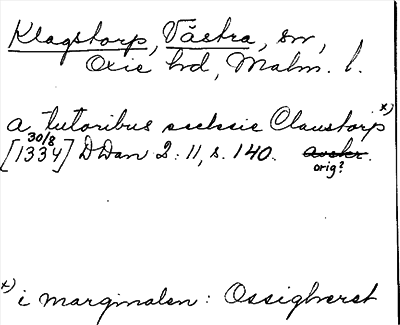 Klagstorp, Västra, sn,
Oxie hd, Malm. l.
a tutoribus ecclesie Claustorp x)
[1334 30/8] DDan 2:11, s. 140. avskr.
orig?
x) i marginalen: Ossigherst